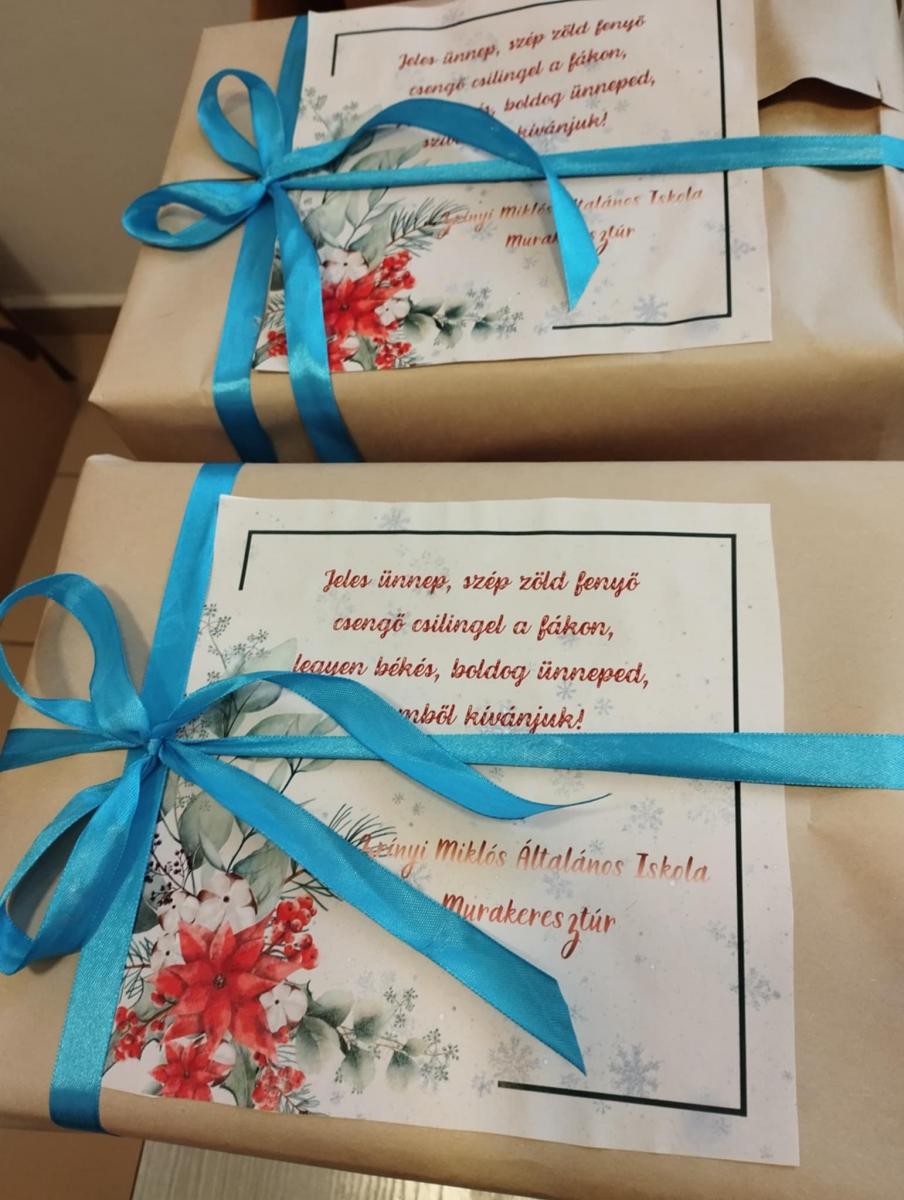 Jeles ünnep, szép zöld fenyő
csengő csilingel a fákon,
boldog ünneped,
kívánjuk!
Miklós Általános Iskola
Jeles ünnep, szép zöld fenyő
csengő csilingel a fákon,
legyen békés, boldog ünneped,
kívánjuk!
Zrínyi Miklós Általános Iskola
Murakeresztúr